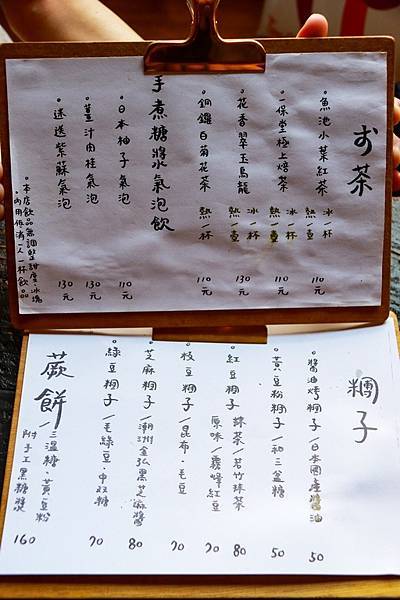 お茶
。魚池小葉紅茶 冰一杯 熱一壺 110元
。一保堂極上焙茶 冰一杯 熱一壺 130元
。花香翠玉烏龍 冰一杯 熱一壺 120元
。銅鑼白菊花茶 熱一杯 110元
手煮糖漿氣泡飲
。日本柚子氣泡 110元
。薑汁肉桂氣泡 130元
。迷迭紫蘇氣泡 130元
。本店飲品無調整甜度、冰塊
。內用低消一人一杯飲品
糰子
。醬油烤糰子/日本國產醬油 50
。黃豆粉糰子/和三盆糖 50
。紅豆糰子/抹茶/若竹抹茶 80
原味/霧峰紅豆 70
。枝豆糰子/昆布.毛豆 70
。芝麻糰子/潮洲金弘黑芝麻醬 80
。綠豆糰子/毛綠豆.中双糖 70
蕨餅/三溫糖.黃豆粉
附手工黑糖漿 160